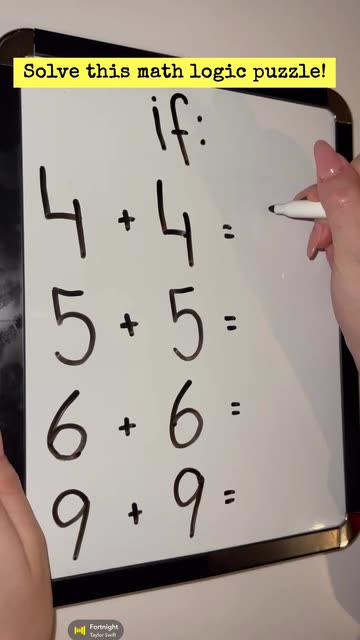 Solve this math logic puzzle!
if:
4 + 4 =
5 + 5 =
6 + 6 =
9 + 9 =
Fortnight
Taylor Swift